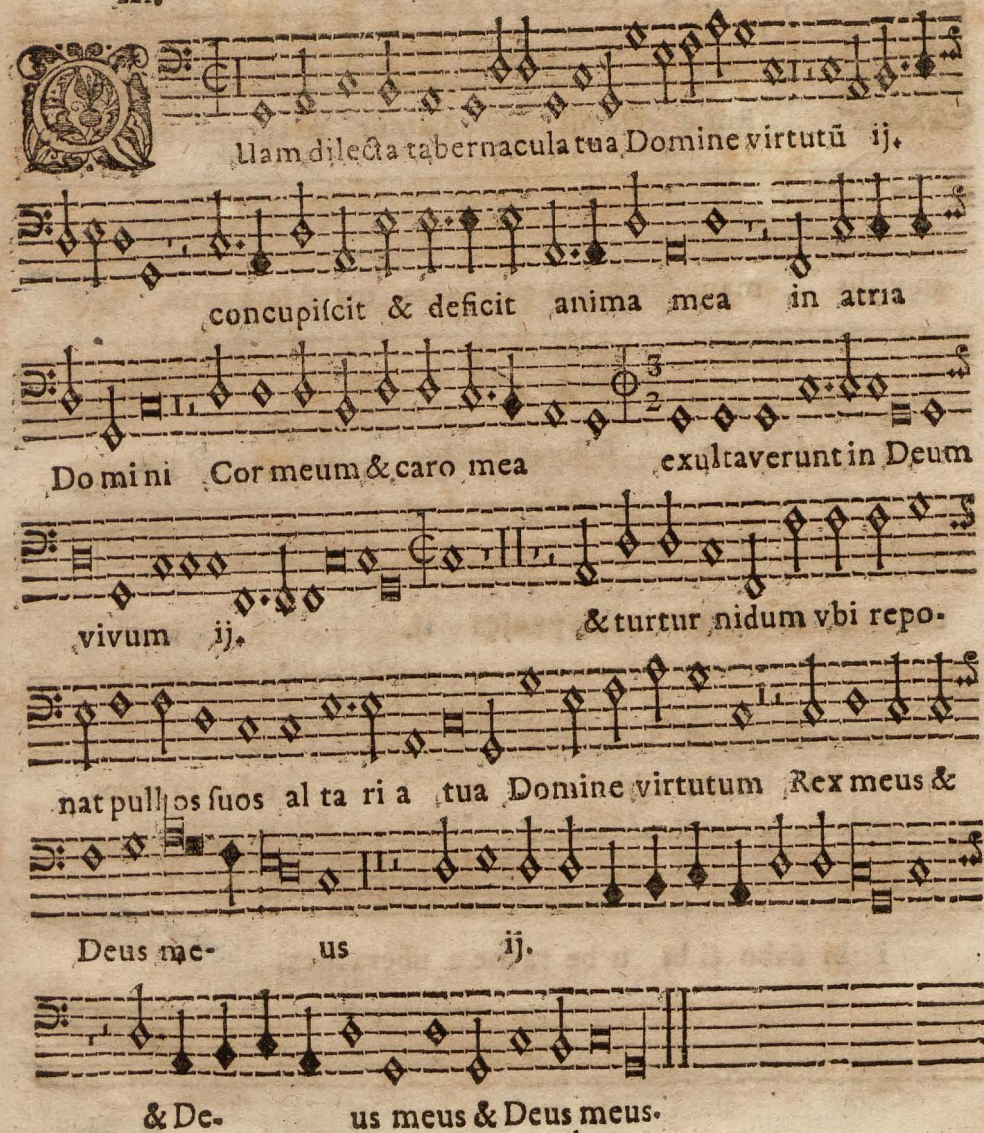 III.
QUam dilecta tabernacula tua Domine virtutū ij.
concupiſcit & deficit anima mea in atria
Do mi ni Cor meum & caro mea exultaverunt in Deum
vivum ij.
& turtur nidum vbi repo-
nat pullos ſuos al ta ri a tua Domine virtutum Rex meus &
Deus me- us ij.
& De- us meus & Deus meus.